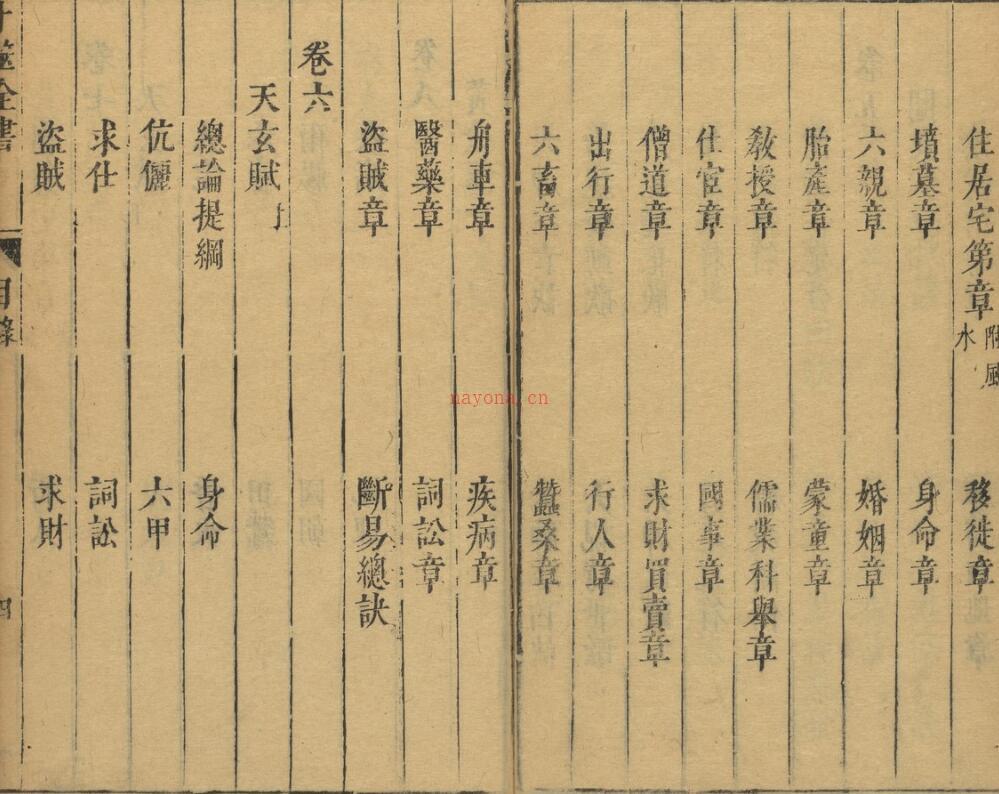 住居宅第章 附風水
移徙章
墳墓章
身命章
六親章
婚姻章
胎產章
蒙童章
敎授章
儒業科舉章
仕宦章
國事章
僧道章
求財買賣章
出行章
行人章
六畜章
蠶桑章
舟車章
疾病章
醫藥章
詞訟章
盜賊章
斷易總訣
卷六
天玄賦上
總論提綱
身命
伉儷
六甲
求仕
詞訟
盜賊
求財
卜筮全書
目錄
四
nayona.cn